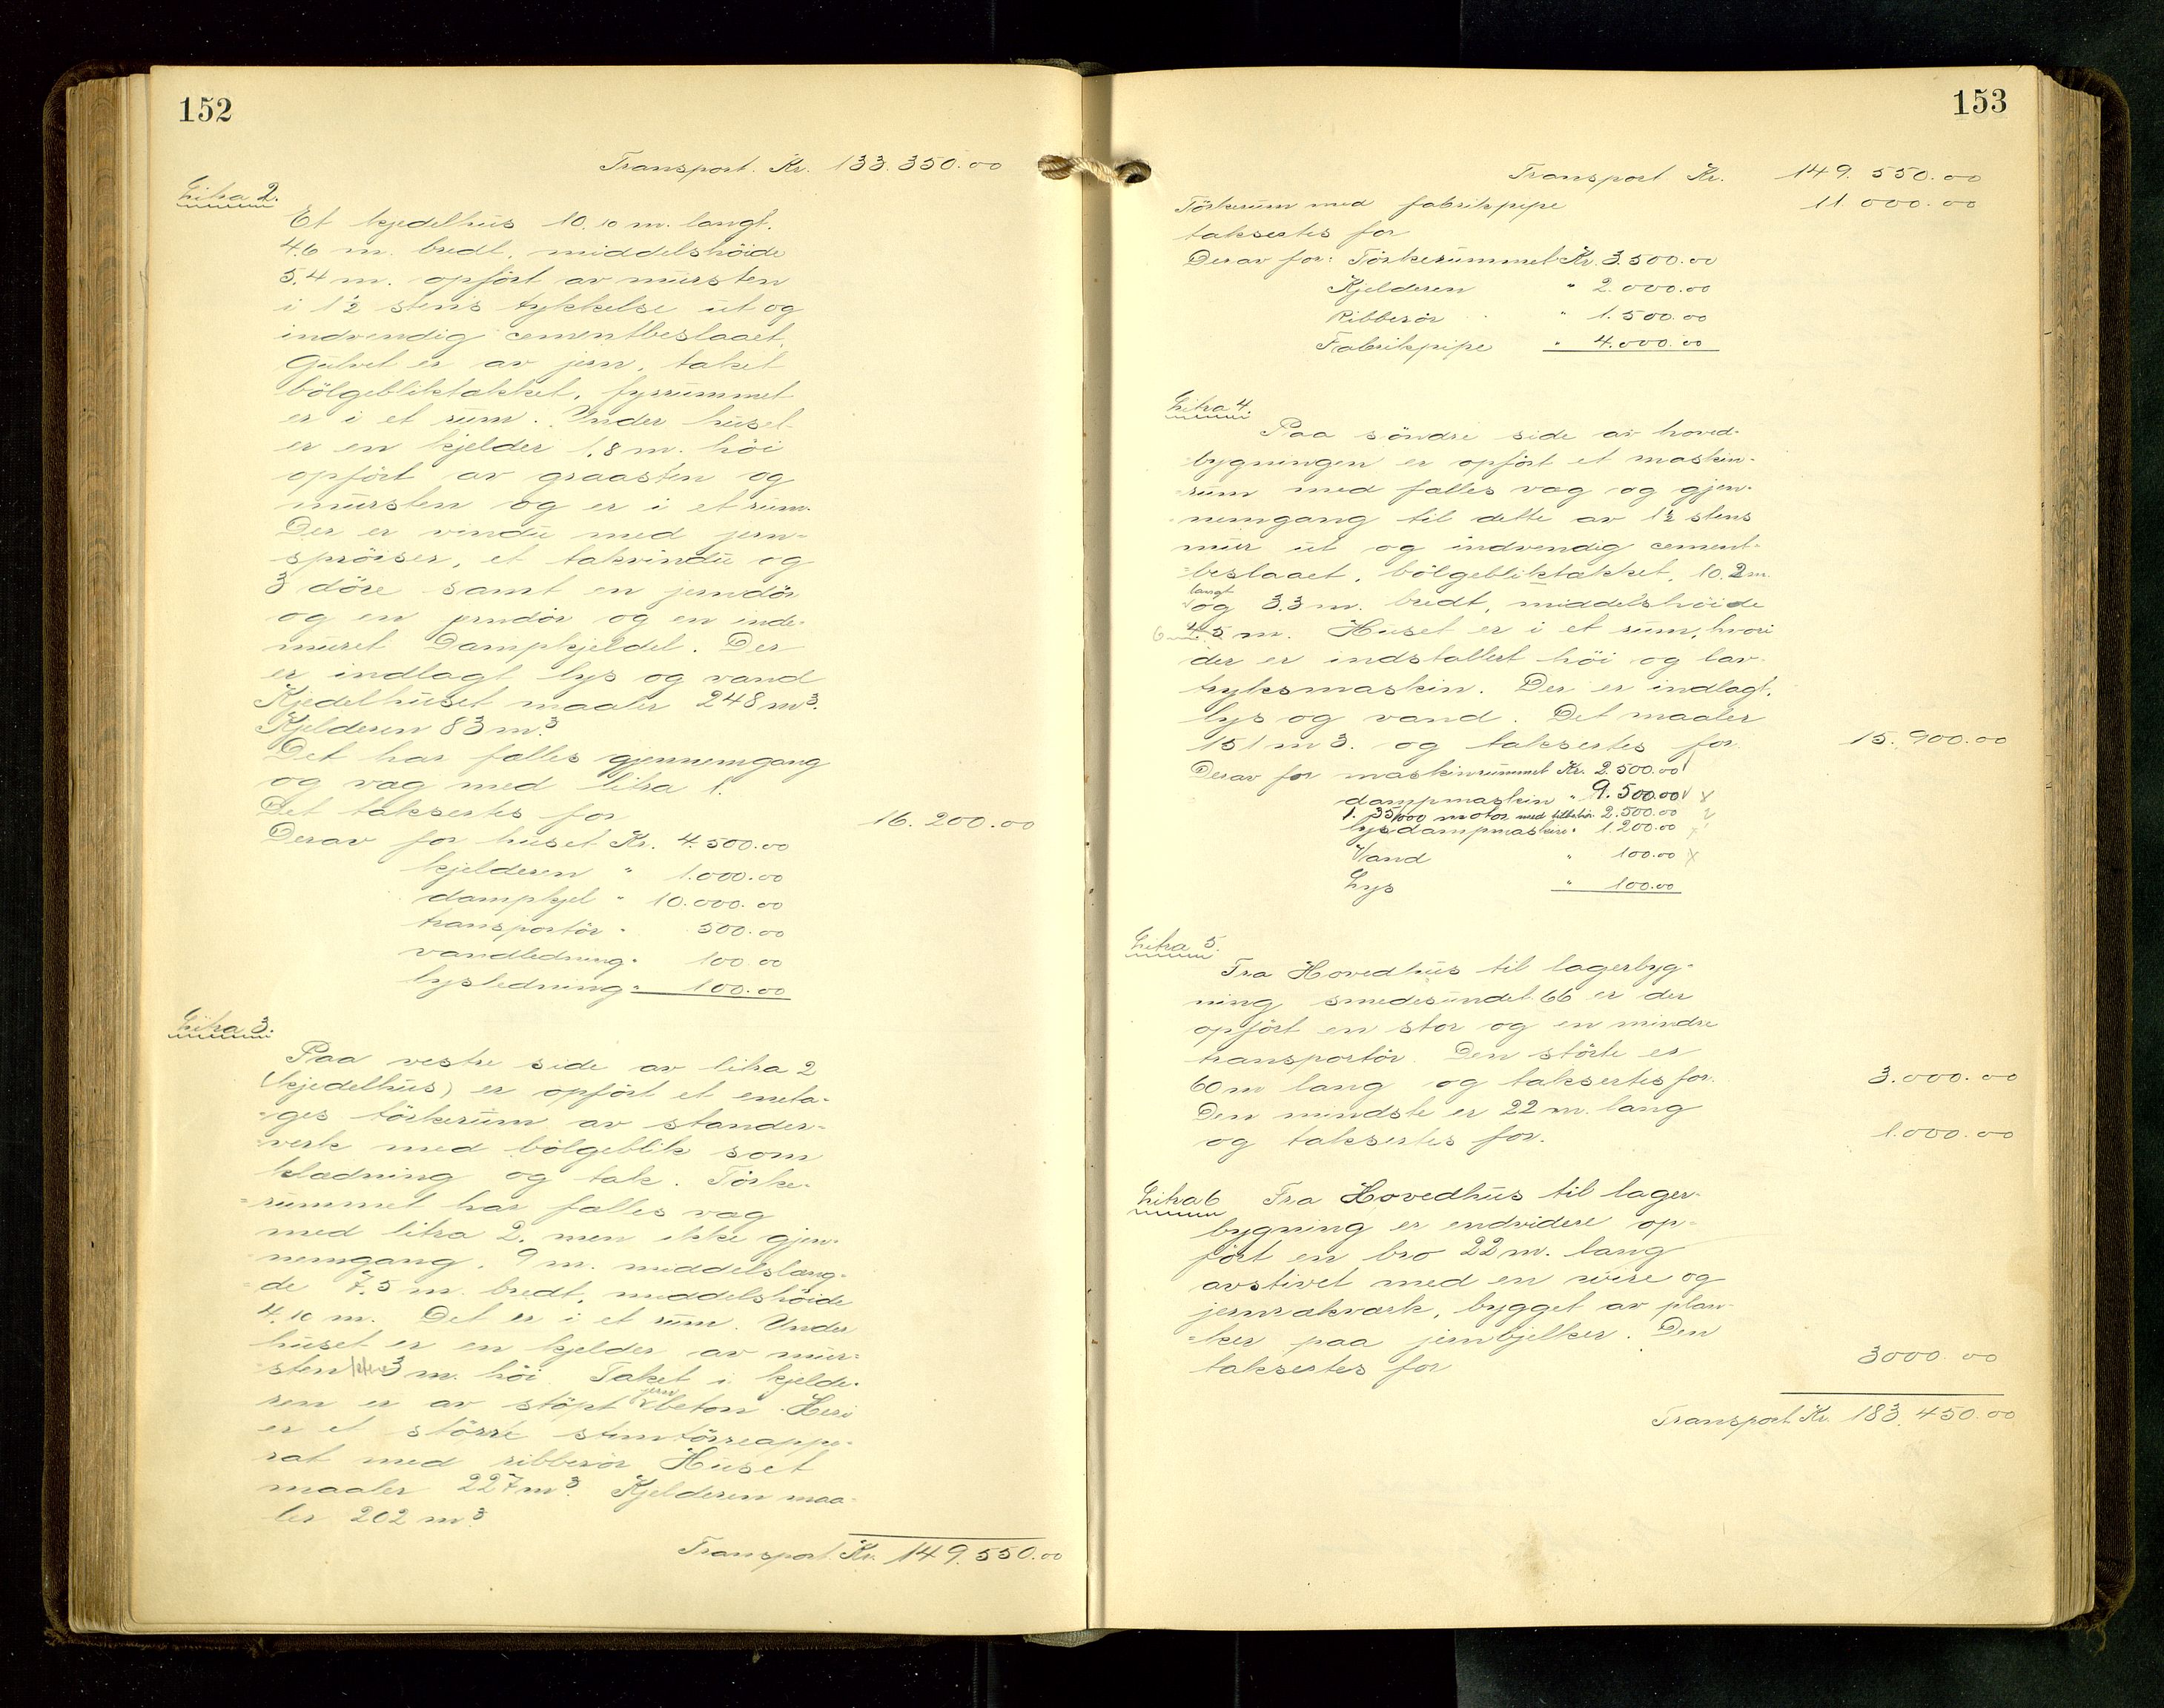 152
Transport. Kr. 133.350.00
Litra 2.
Et kjedelhus 10.10 m. langt.
4.6 m. bredt, middelshöide
5.4 m. opført av mursten
i 1½ stens tykkelse ut og
indvendig cementbeslaaet.
Gulvet er av jern, taket
bölgebliktækket, fyrrummet
er i et rum. Under huset
er en kjelder 1.8 m. höi
opfört av graasten og
mursten og er i et rum.
Der er vindu med jern-
spröiser, et takvindu og
3 döre samt en jerndör
og en jerndör og en inde-
muret Dampkjeldel. Der
er indlagt lys og vand
Kjedelhuset maaler 248 m³.
Kjelderen 83 m³.
Det har fælles gjennemgang
og væg med litra 1.
Det taksertes for 16.200.00
Derav for huset Kr. 4.500.00
kjelderen " 1.000.00
dampkjel " 10.000.00
transportör " 500.00
vandledning " 100.00
lysledning " 100.00
Litra 3.
Paa vestre side av litra 2
(kjedelhus) er opfört et eneta-
-ges törkerum av stander-
-verk med bölgeblik som
klædning og tak. Törke-
-rummet har fælles væg
med litra 2. men ikke gjen-
-nemgang. 9 m. middelslæng-
-de 7.5 m. bredt, middelshöide
4.10 m. Det er i et rum. Under
huset er en kjelder av mur-
-sten 3 m. höi. Taket i kjelde-
ren er av stöpt jern beton. Heri
er et större stentörreappa-
rat med ribberör Huset
maaler 227 m³. Kjelderen maa-
ler 202 m³.
Transport. Kr. 149.550.00
153
Transport Kr. 149.550.00
Törkerum med fabrikpipe 11 000.00
taksertes for
Derav for: Törkerummet Kr. 3.500.00
Kjelderen " 2.000.00
Ribberör " 1.500.00
Fabrikpipe " 4.000.00
Litra 4.
Paa söndre side av hoved-
-bygningen er opfört et maskin-
-rum med fælles væg og gjen-
-nemgang til dette av 1½ stens
mur ut og indvendig cement-
-beslaaet, bölgebliktækket, 10.2 m.
langt
og 3.3 m. bredt, middelshöide
4.5 m. Huset er i et rum, hvori
der er indstallert höi og lav-
tryksmaskin. Der er indlagt.
lys og vand. Det maaler
151 m3. og taksertes for. 15.900.00
Derav for maskinrummet Kr. 2.500.00
dampmaskin " 9.500.00 x
1. motor med tilbehör 2.500.00
lysdampmaskin " 1.200.00
Vand " 100.00 x
Lys " 100.00
Litra 5.
Fra Hovedhus til lagerbyg-
ning smedesundet 66 er der
opfört en stor og en mindre
transportör. Den störte er
60 m lang og taksertes for. 3.000.00
Den mindste er 22 m. lang
og taksertes for. 1.000.00
Litra 6 Fra Hovedhus til lager-
bygning er endvidere op-
fört en bro 22 m. lang
avstivet med en wire og
jernrækværk, bygget av plan-
-ker paa jernbjelker. Den
taksertes for 3000.00
Transport. Kr. 183.450.00